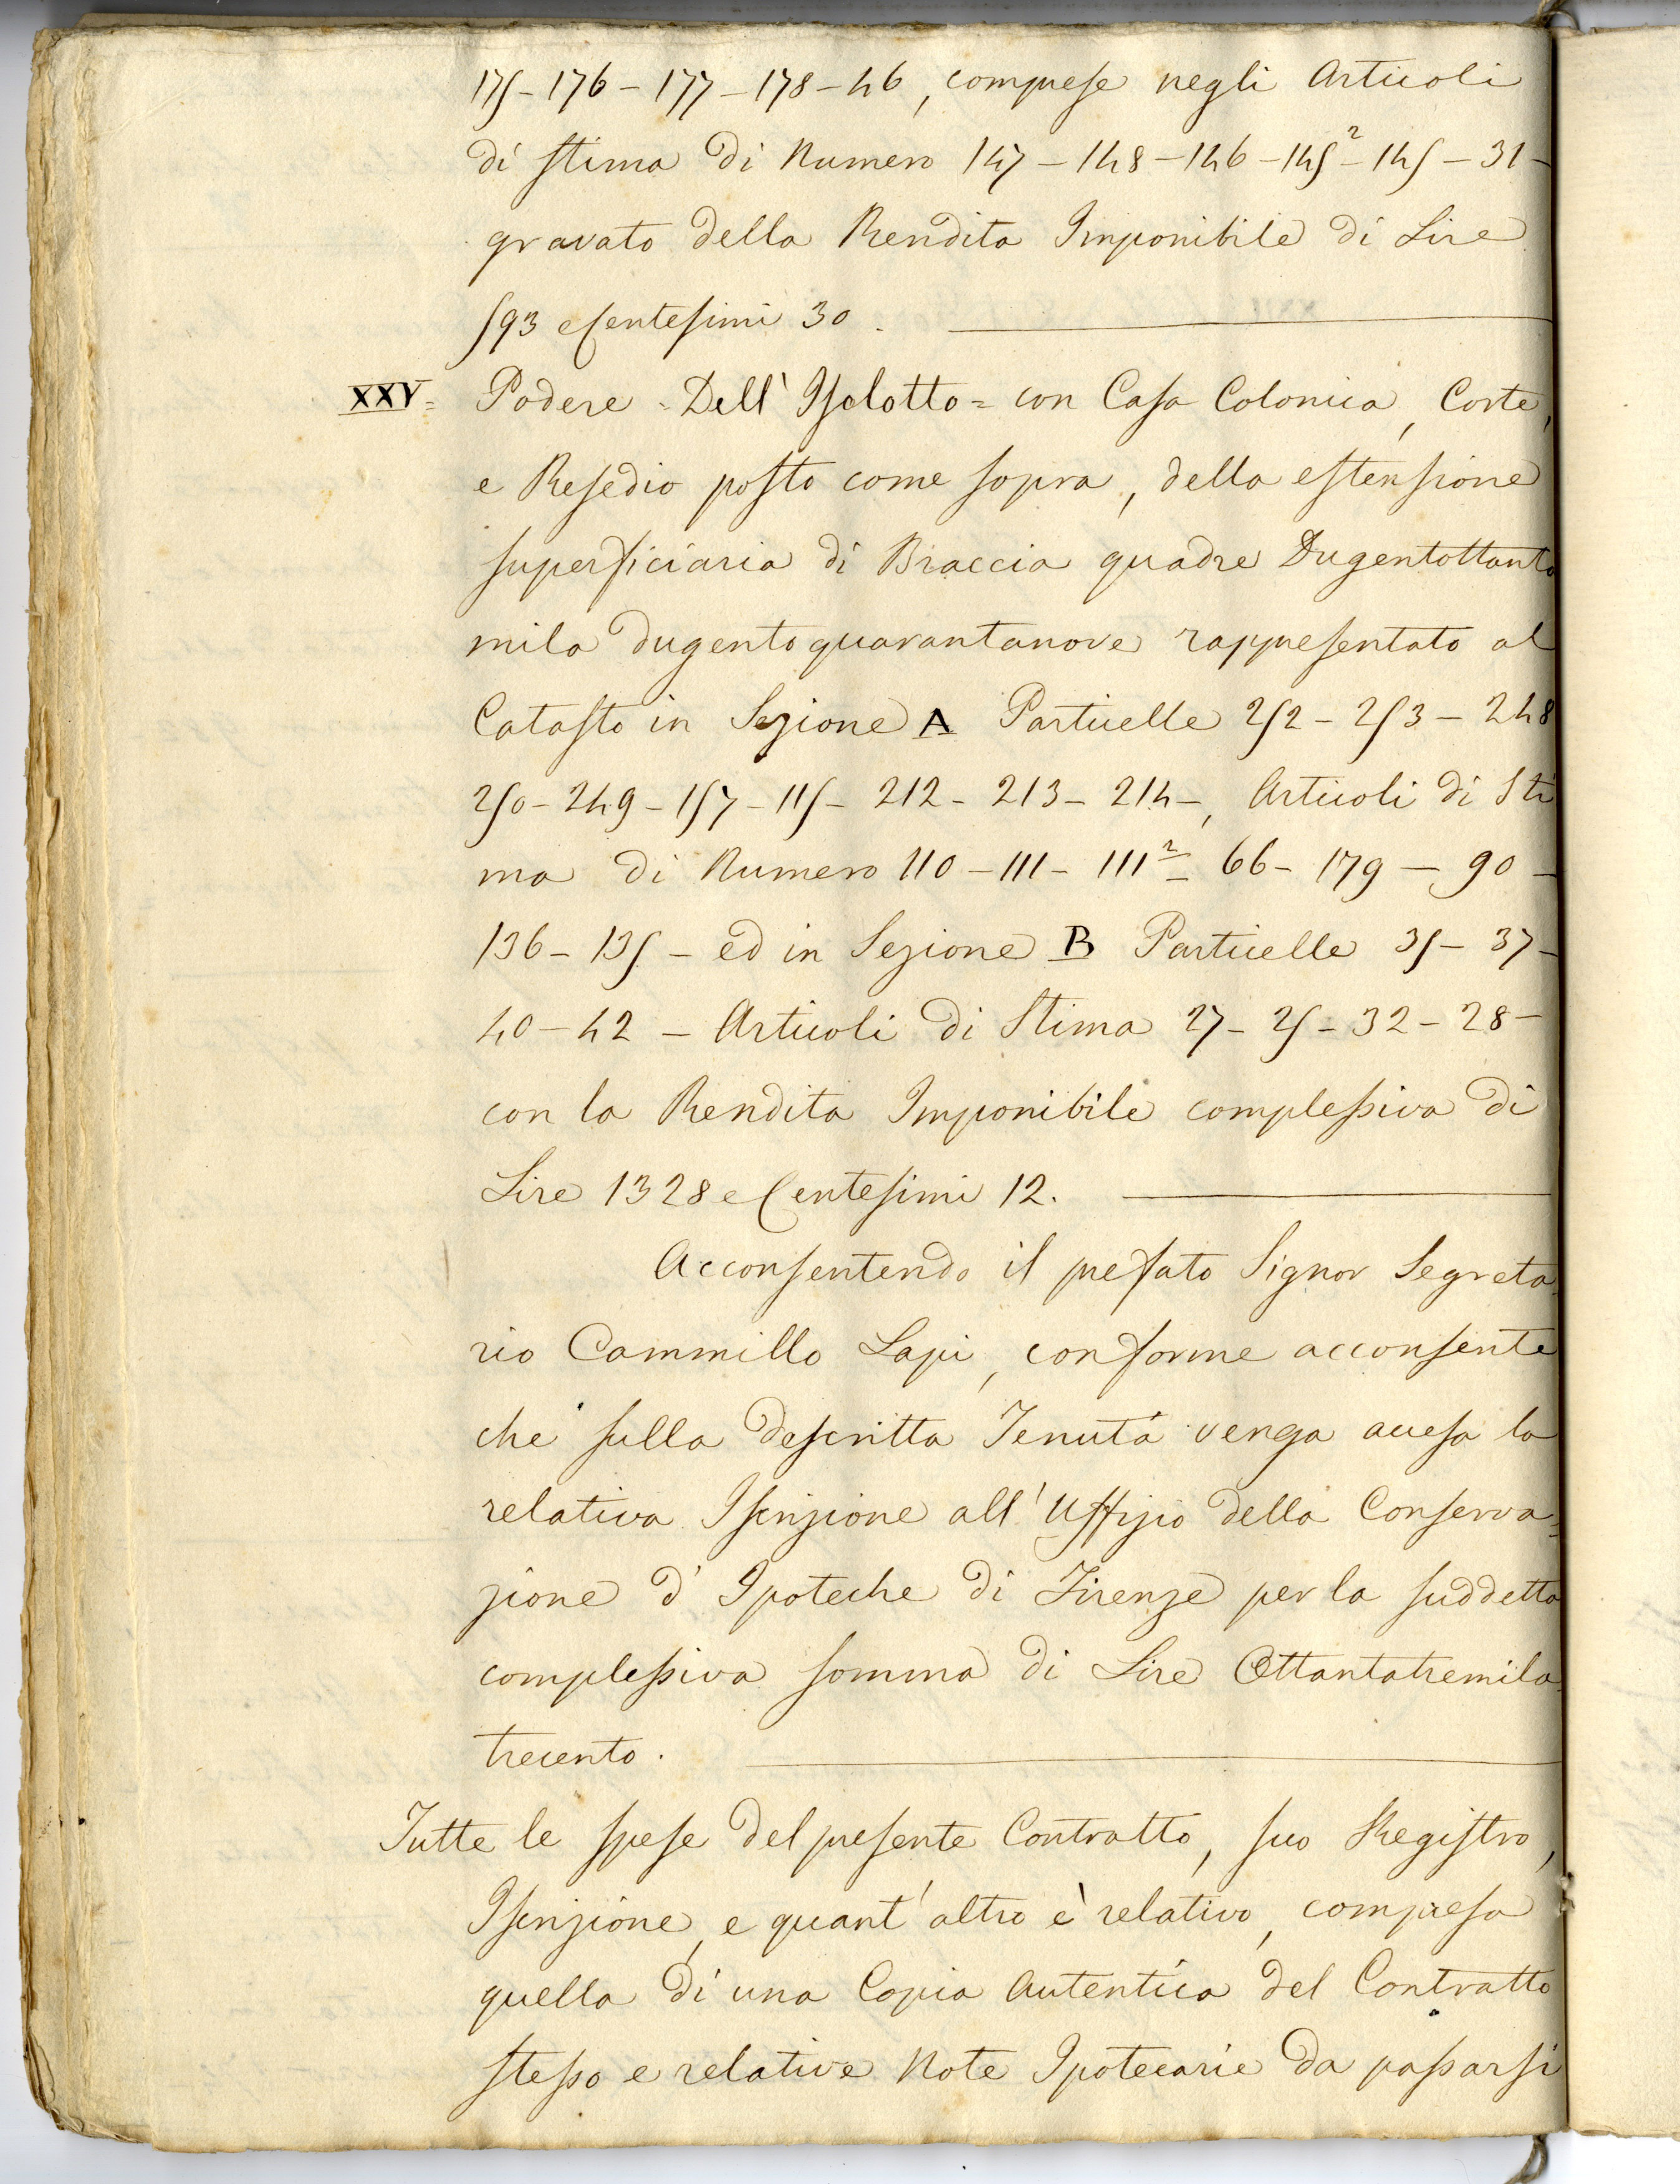 175 - 176 - 177 - 178 - 46, comprese negli Articoli
di stima di Numero 147 - 148 - 146 - 145² - 145 - 31 -
gravato della Rendita Imponibile di Lire
593 e Centesimi 30.
XXV = Podere = Dell' Isolotto = con Casa Colonica, Corte,
e Resedio posto come sopra, della estensione
superficiaria di Braccia quadre Dugentottanta
mila dugentoquarantanove rappresentato al
Catasto in Sezione A Particelle 252 - 253 - 248
250 - 249 - 157 - 115 - 212 - 213 - 214 -, Articoli di Sti
ma di Numero 110 - 111 - 111² - 66 - 179 - 90 -
136 - 135 - ed in Sezione B Particelle 35 - 37 -
40 - 42 - Articoli di Stima 27 - 25 - 32 - 28 -
con la Rendita Imponibile complessiva di
Lire 1328 e Centesimi 12.
Acconsentendo il prefato Signor Segreta
rio Cammillo Lapi, conforme acconsente
che sulla descritta Tenuta venga accesa la
relativa Iscrizione all' Uffizio della Conserva=
zione d' Ipoteche di Firenze per la suddetta
complessiva somma di Lire Ottantatremila
trecento.
Tutte le spese del presente Contratto, suo Registro,
Iscrizione, e quant' altro è relativo, compresa
quella di una Copia Autentica del Contratto
stesso e relative Note Ipotecarie da passarsi